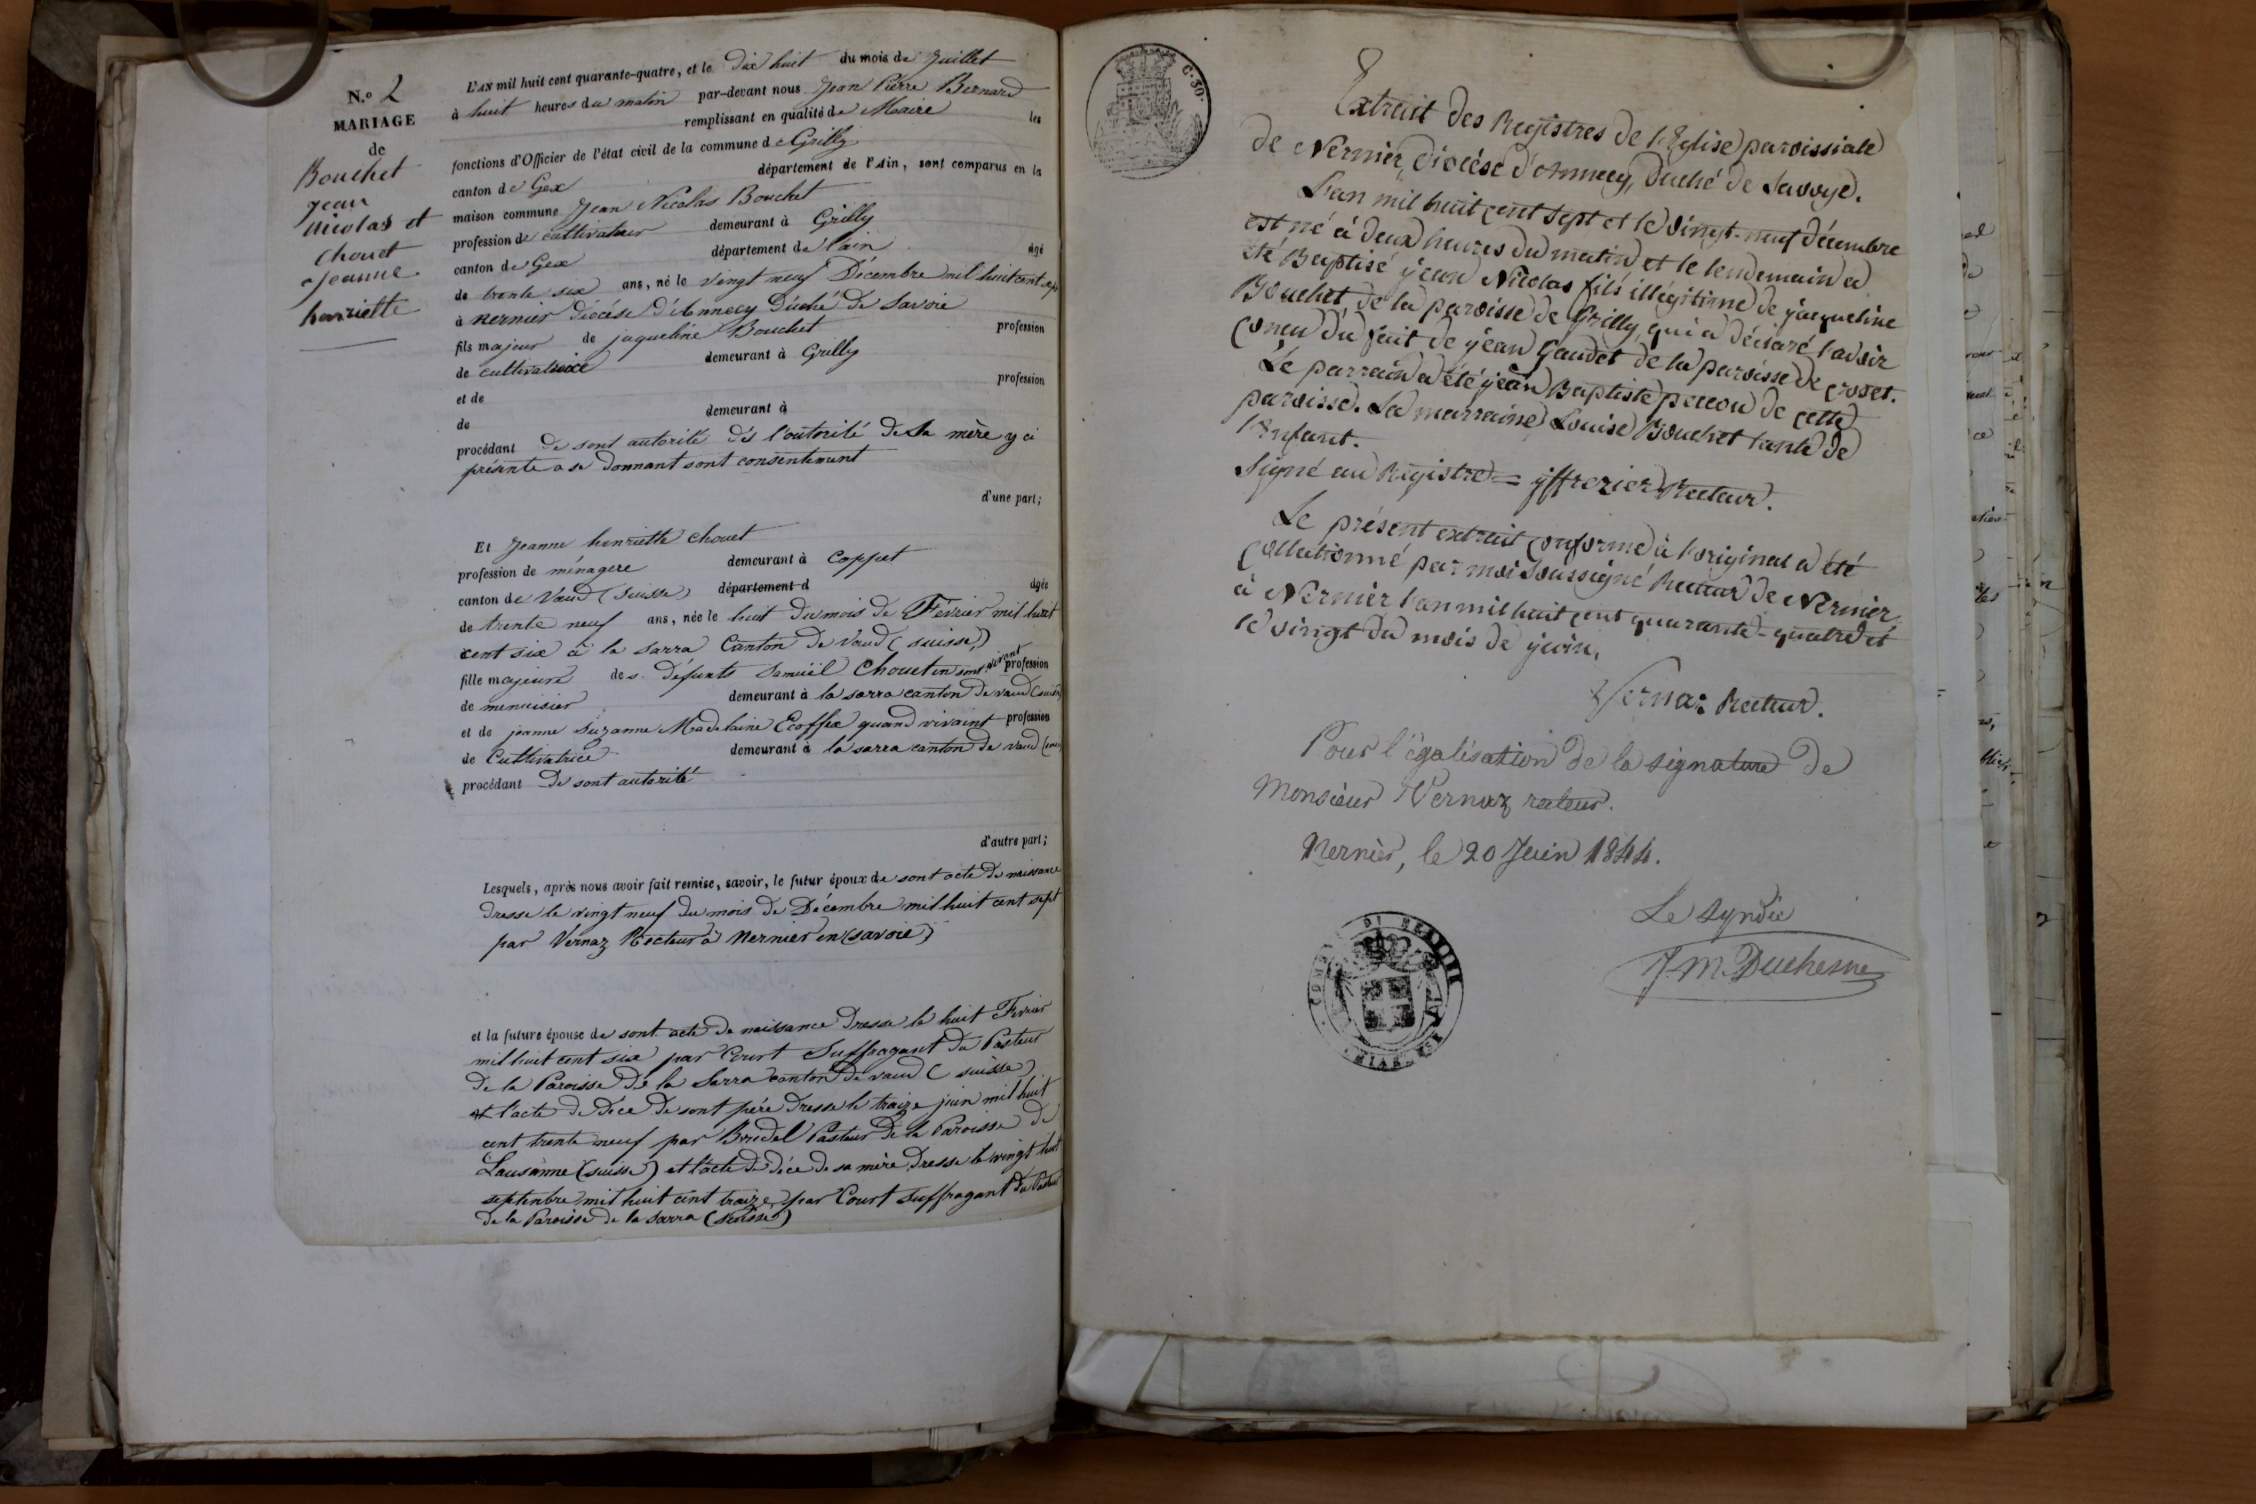 N.º 2
MARIAGE
de
Bouchet
Jean
Nicolas et
Chouet
Jeanne
henriette
L'AN mil huit cent quarante-quatre, et le Dix huit du mois de Juillet
à huit heures du matin par-devant nous Jean Pierre Bernard
remplissant en qualité de Maire les
fonctions d'Officier de l'état civil de la commune de Grilly
canton de Gex département de l'Ain, sont comparus en la
maison commune Jean Nicolas Bouchet
profession de cultivateur demeurant à Grilly
canton de Gex département de l'ain âgé
de trente six ans, né le vingt neuf Décembre mil huit cent sept
à Nernier Diocése d'Annecy Duché de Savoie
fils majeur de jaqueline Bouchet profession
de cultivatrice demeurant à Grilly
et de profession
de demeurant à
procédant de sont autorité dès l'autorité de sa mère y ci
présente a se donnant sont consentement
d'une part;
Et Jeanne henriette Chouet
profession de ménagere demeurant à Coppet
canton de Vaud (Suisse) département d âgée
de trente neuf ans, née le huit du mois de Février mil huit
cent six à la Sarra Canton de Vaud (suisse)
fille majeure des Défunts Samuël Chouet en sont vivant profession
de menuisier demeurant à la sarra canton de vaud (suisse
et de jeanne Suzanne Madelaine Ecoffex quand vivaint profession
de Cultivatrice demeurant à la sarra canton de vaud
procédant De sont autorité
d'autre part;
Lesquels, après nous avoir fait remise, savoir, le futur époux de sont acte de naissance
dresse le vingt neuf du mois de Décembre mil huit cent sept
par Vernaz Recteur à Nernier en (savoie)
et la future épouse de sont acte de naissance Dresse le huit Fevrier
mil huit cent six par Court Suffragant du Pasteur
de la Paroisse de la Sarra canton de vaud (suisse)
et l'acte de Déce de sont pére Dresse le traize juin mil huit
cent trente neuf par Bridel Pasteur de la Paroisse de
Lausanne (suisse) et l'acte de déce de sa mère Dresse le vingt huit
septenbre mil huit cent traize par Court suffragant du Pasteur
de la Paroisse de la Sarra (Suisse)
C. 30.
Extrait des Registres de l'Eglise paroissiale
de Nernier, diocèse d'Annecy, Duché de Savoye.
L'an mil huit cent sept et le vingt-neuf décembre
est né à deux heures du matin et le lendemain a
été Baptisé jean Nicolas fils illégitime de jacqueline
Bouchet de la paroisse de Grilly, qui a déclaré l'avoir
conçu du fait de jean Gaudet de la paroisse de crozet.
Le parrain a été jean Baptiste peccou de cette
paroisse. La marraine Louise Bouchet tante de
l'enfant.
Signé au Registre = jffrezier Recteur.
Le présent extrait conforme à l'original a été
collationné par moi soussigné Recteur de Nernier,
à Nernier l'an mil huit cent quarante-quatre et
le vingt du mois de juin.
Vernaz Recteur.
Pour légalisation de la signature de
Monsieur Vernaz recteur.
Nernier, le 20 Juin 1844.
Le Syndic
J. M. Duchesne